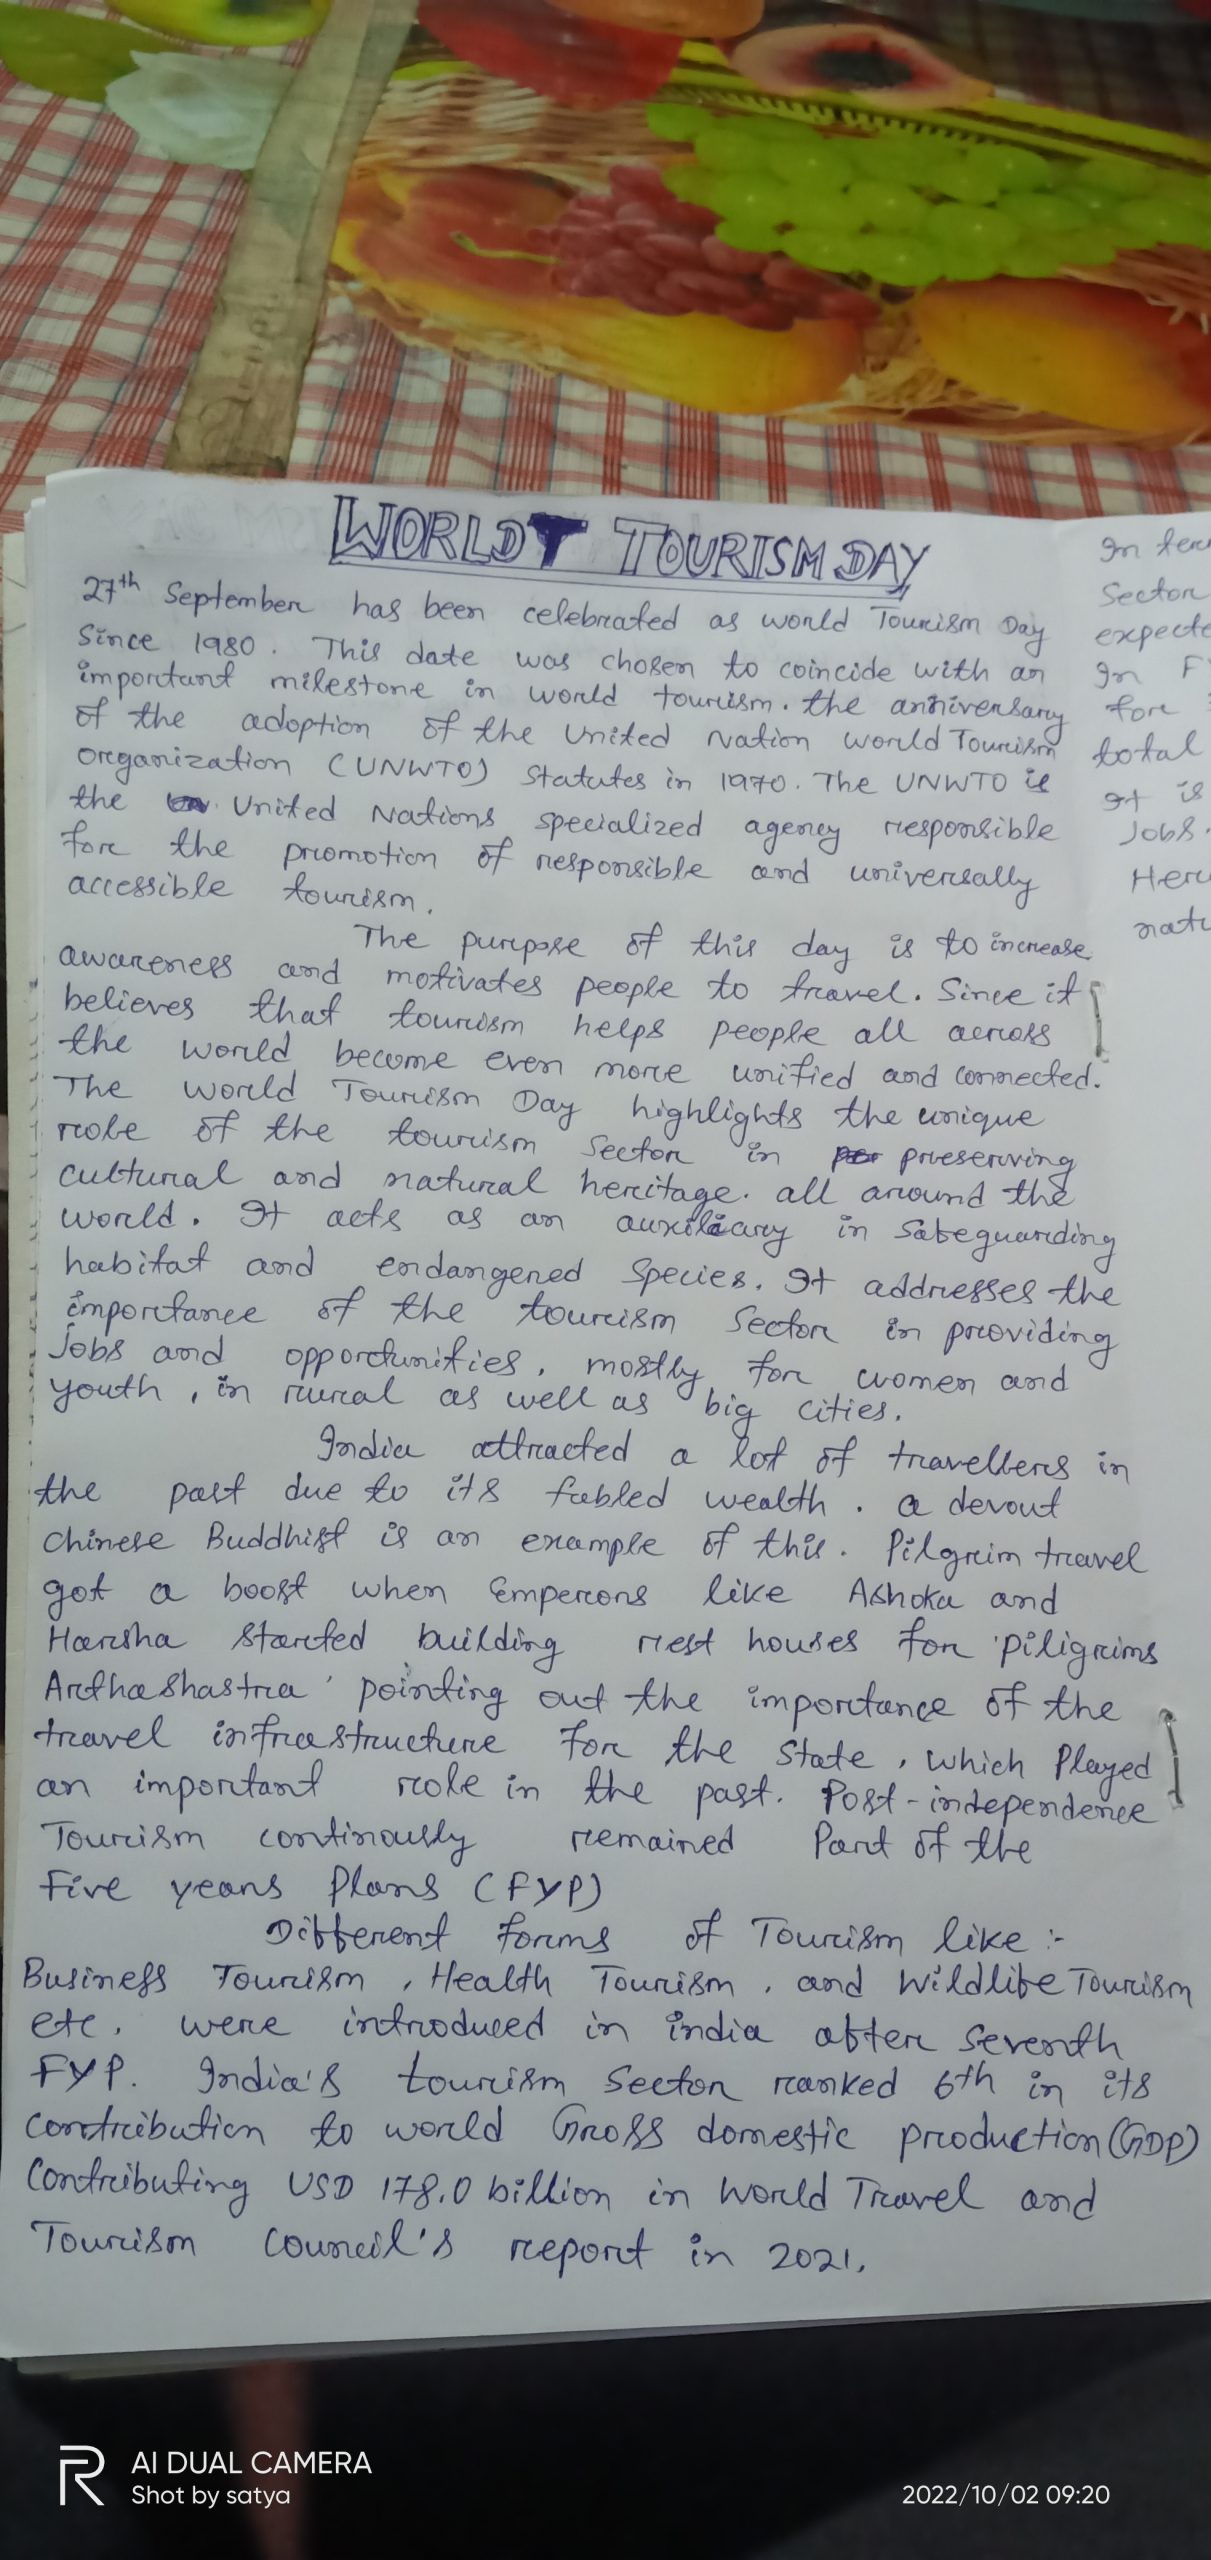 WORLD TOURISM DAY
27th September has been celebrated as world Tourism Day
Since 1980. This date was chosen to coincide with an
important milestone in world tourism. the anniversary
of the adoption of the United Nation world Tourism
organization (UNWTO) Statutes in 1970. The UNWTO is
the United Nations specialized agency responsible
for the promotion of responsible and universally
accessible tourism.
The purpose of this day is to increase
awareness and motivates people to travel. Since it
believes that tourism helps people all across
the world become even more unified and connected.
The world Tourism Day highlights the unique
role of the tourism Sector in preserving
cultural and natural heritage. all around the
world. It acts as an auxiliary in safeguarding
habitat and endangered Species. It addresses the
importance of the tourism Sector in providing
Jobs and opportunities, mostly for women and
youth, in rural as well as big cities.
India attracted a lot of travellers in
the past due to its fabled wealth. a devout
chinese Buddhist is an example of this. Pilgrim travel
got a boost when Emperors like Ashoka and
Harsha started building rest houses for 'piligrims
Arthashastra' pointing out the importance of the
travel infrastructure for the state, which Played
an important role in the past. Post-independence
Tourism continously remained Part of the
Five years Plans (FYP)
Different forms of Tourism like :-
Business Tourism, Health Tourism, and Wildlife Tourism
etc. were introduced in india after Seventh
FYP. India's tourism Sector ranked 6th in its
contribution to world Gross domestic production (GDP)
Contributing USD 178.0 billion in World Travel and
Tourism Council's report in 2021.
In
Sector
In
for
total
It is
Jobs.
AI DUAL CAMERA
Shot by satya
2022/10/02 09:20